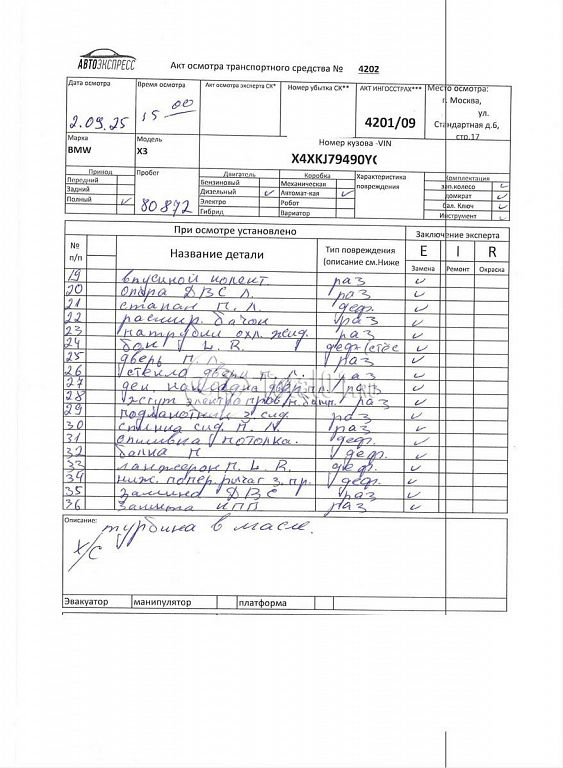 АВТОЭКСПРЕСС
Акт осмотра транспортного средства № 4202
Дата осмотра
Время осмотра
Акт осмотра эксперта СК*
Номер убытка СК**
АКТ ИНГОССТРАХ***
Место осмотра:
г. Москва,
ул.
Стандартная д.6,
стр.17
2.09.25
15 00
4201/09
Марка
Модель
Номер кузова -VIN
BMW
X3
X4XKJ79490Y
Привод
Пробег
Двигатель
Коробка
Характеристика
повреждения
Комплектация
Передний
Бензиновый
Механическая
зап.колесо
Задний
Дизельный
Автомат-кая
домкрат
Полный
80892
Электро
Робот
Бал. Ключ
Гибрид
Вариатор
Инструмент
При осмотре установлено
Заключение эксперта
№
п/п
Название детали
Тип повреждения
(описание см.Ниже
E I R
Замена Ремонт Окраска
19 раз
20 опора ДВС Л. раз
21 П. Л. деф.
22 расшир. бачок раз
23 патрубки охл. жид. раз
24 L. R. деф
25 дверь П. Л. раз
26 стекла двери П. Л. раз
27 раз
28 жгут электропров. раз
29 раз
30 спинка сид. П. Л. раз
31 потолка. деф.
32 деф.
33 лонжерон П. L. R. деф.
34 ниж. попер. рычаг з. пр. деф.
35 ДВС раз
36 защита КПП раз
Описание:
турбина в масле.
Х/С
Эвакуатор
манипулятор
платформа